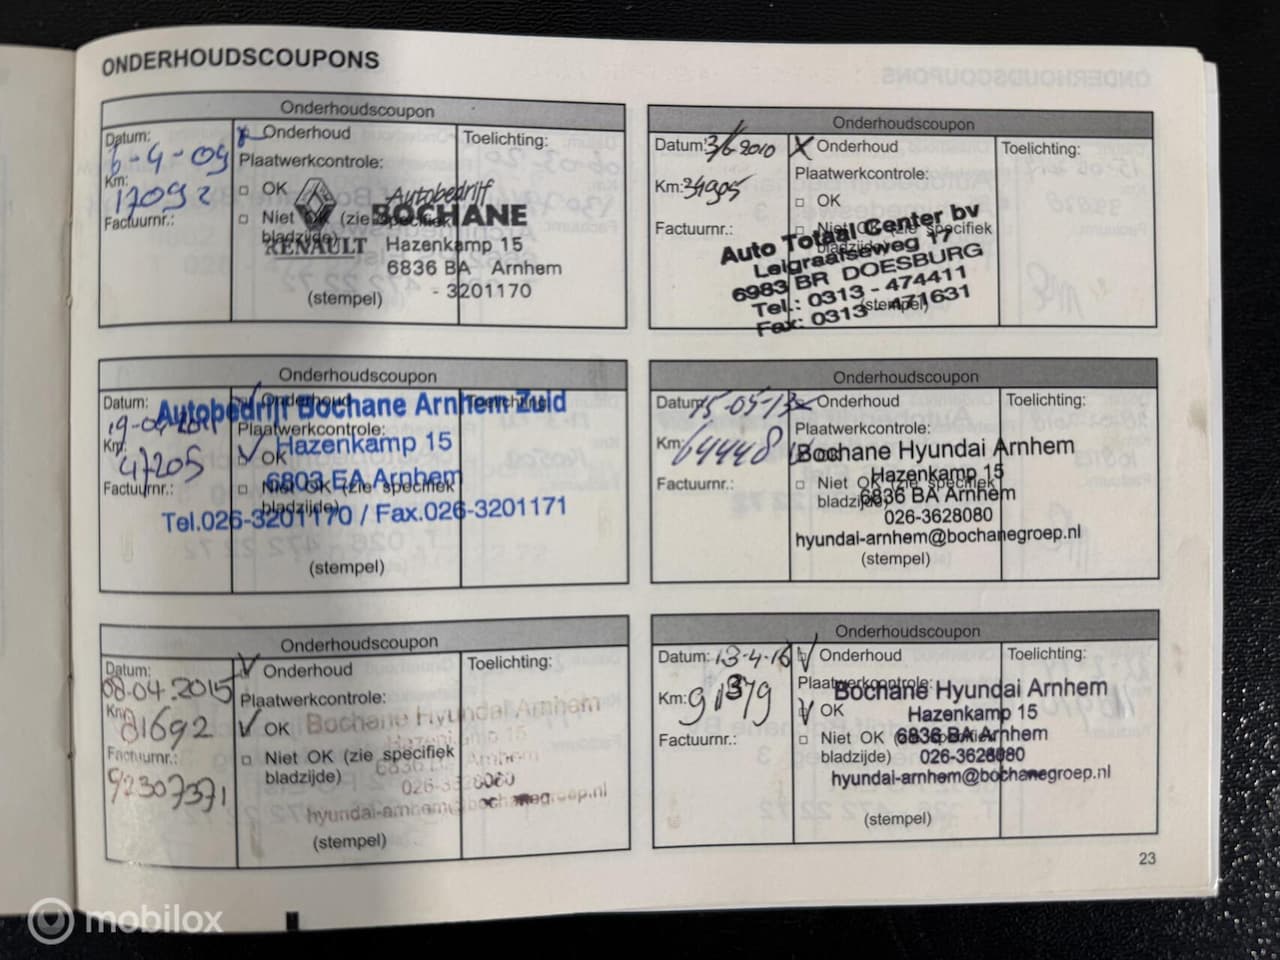 ONDERHOUDSCOUPONS
Onderhoudscoupon
Datum:
6-4-09
Km:
17092
Factuurnr.:
Onderhoud
Plaatwerkcontrole:
OK
Niet OK (zie specifiek
bladzijde)
(stempel)
Toelichting:
Autobedrijf
BOCHANE
RENAULT
Hazenkamp 15
6836 BA Arnhem
- 3201170
Onderhoudscoupon
Datum: 3/6 2010
Km: 34905
Factuurnr.:
Onderhoud
Plaatwerkcontrole:
OK
Niet OK (zie specifiek
bladzijde)
(stempel)
Toelichting:
Auto Totaal Center bv
Leigraafseweg 17
6983 BR DOESBURG
Tel.: 0313 - 474411
Fax: 0313 - 471631
Onderhoudscoupon
Datum:
Km:
47205
Factuurnr.:
Onderhoud
Plaatwerkcontrole:
OK
Niet OK (zie specifiek
bladzijde)
(stempel)
Toelichting:
Autobedrijf Bochane Arnhem Zuid
Hazenkamp 15
6803 EA Arnhem
Tel.026-3201170 / Fax.026-3201171
Onderhoudscoupon
Datum: 15-05-13
Km: 64448
Factuurnr.:
Onderhoud
Plaatwerkcontrole:
OK
Niet OK (zie specifiek
bladzijde)
(stempel)
Toelichting:
Bochane Hyundai Arnhem
Hazenkamp 15
6836 BA Arnhem
026-3628080
hyundai-arnhem@bochanegroep.nl
Onderhoudscoupon
Datum:
08-04-2015
Km:
81692
Factuurnr.:
92307371
Onderhoud
Plaatwerkcontrole:
OK
Niet OK (zie specifiek
bladzijde)
(stempel)
Toelichting:
Bochane Hyundai Arnhem
Hazenkamp 15
6836 BA Arnhem
026-3628080
hyundai-arnhem@bochanegroep.nl
Onderhoudscoupon
Datum: 13-4-16
Km: 91379
Factuurnr.:
Onderhoud
Plaatwerkcontrole:
OK
Niet OK (zie specifiek
bladzijde)
(stempel)
Toelichting:
Bochane Hyundai Arnhem
Hazenkamp 15
6836 BA Arnhem
026-3628080
hyundai-arnhem@bochanegroep.nl
23
mobilox